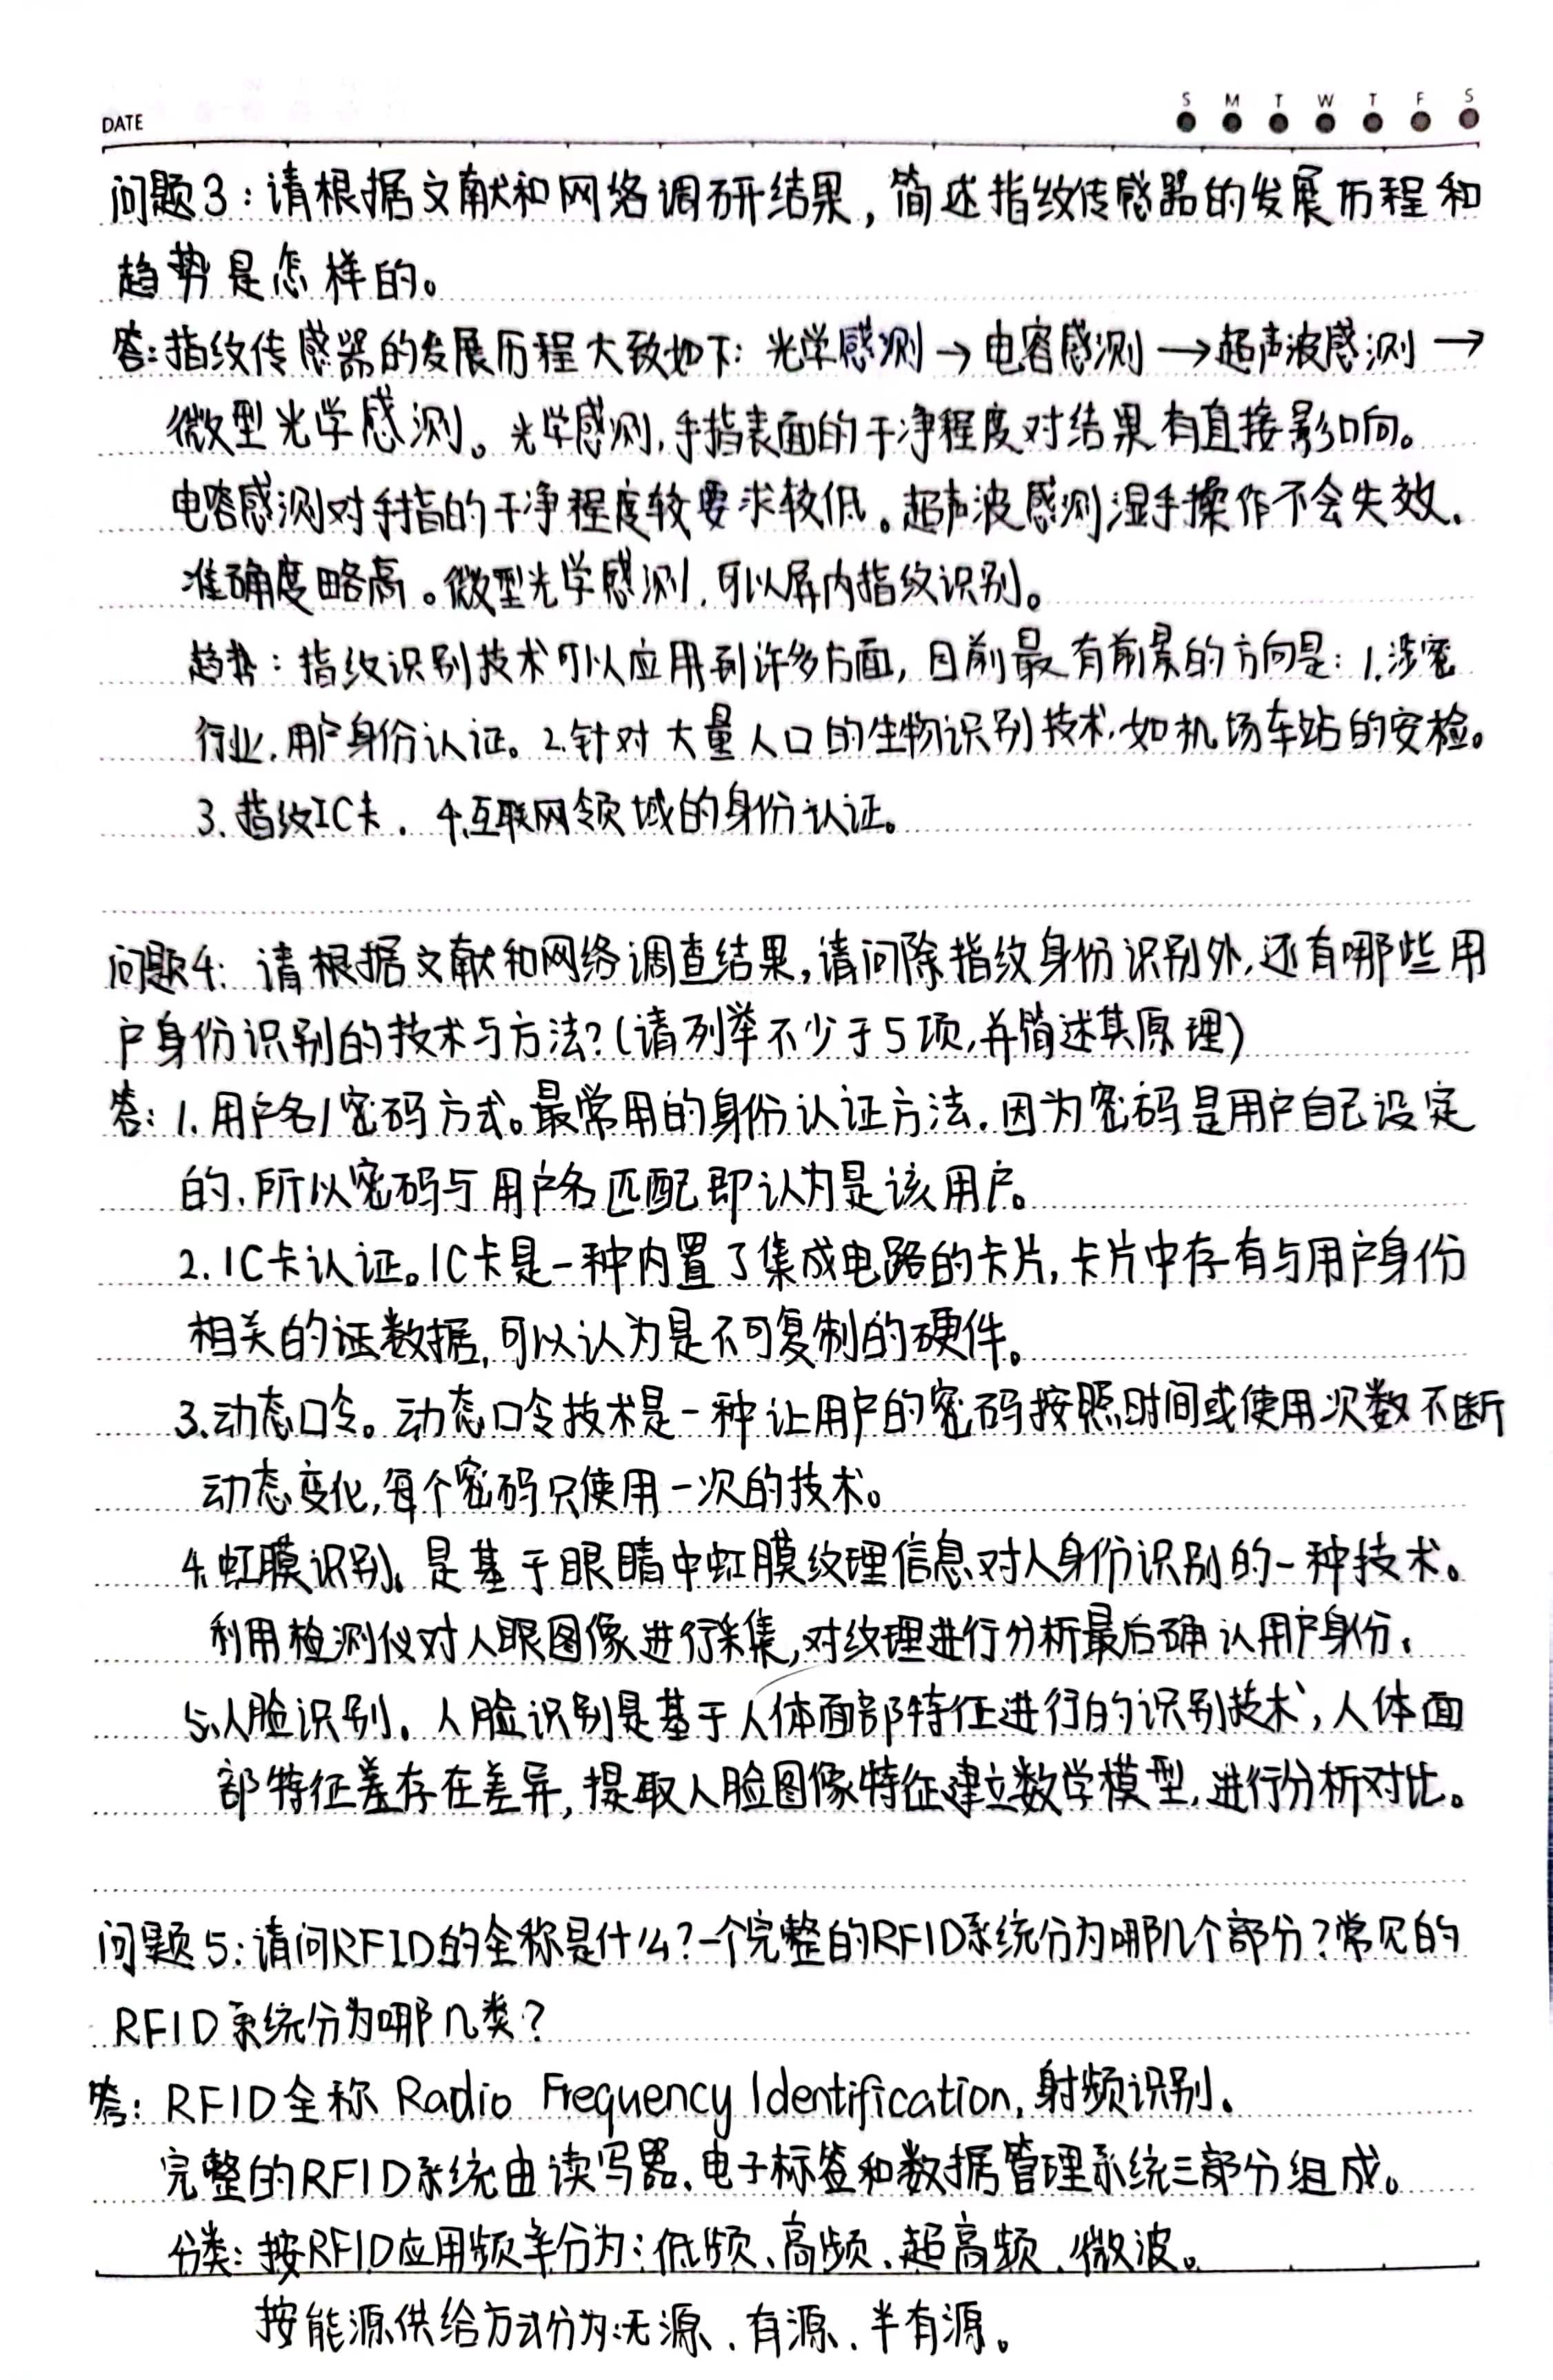 DATE
S M T W T F S
问题3:请根据文献和网络调研结果,简述指纹传感器的发展历程和
趋势是怎样的。
答:指纹传感器的发展历程大致如下:光学感测→电容感测→超声波感测→
微型光学感测。光学感测,手指表面的干净程度对结果有直接影响。
电容感测对手指的干净程度较要求较低。超声波感测湿手操作不会失效.
准确度略高。微型光学感测,可以屏内指纹识别。
趋势:指纹识别技术可以应用到许多方面,目前最有前景的方向是:1.涉密
行业.用户身份认证。2.针对大量人口的生物识别技术,如机场车站的安检。
3.指纹IC卡. 4.互联网领域的身份认证。
问题4:请根据文献和网络调查结果,请问除指纹身份识别外,还有哪些用
户身份识别的技术与方法?(请列举不少于5项,并简述其原理)
答:1.用户名/密码方式。最常用的身份认证方法.因为密码是用户自己设定
的.所以密码与用户名匹配即认为是该用户。
2.IC卡认证。IC卡是一种内置了集成电路的卡片,卡片中存有与用户身份
相关的证数据,可以认为是不可复制的硬件。
3.动态口令。动态口令技术是一种让用户的密码按照时间或使用次数不断
动态变化,每个密码只使用一次的技术。
4.虹膜识别。是基于眼睛中虹膜纹理信息对人身份识别的一种技术。
利用检测仪对人眼图像进行采集,对纹理进行分析最后确认用户身份.
5.人脸识别。人脸识别是基于人体面部特征进行的识别技术,人体面
部特征差存在差异,提取人脸图像特征建立数学模型,进行分析对比。
问题5:请问RFID的全称是什么?一个完整的RFID系统分为哪几个部分?常见的
RFID系统分为哪几类?
答:RFID全称 Radio Frequency Identification,射频识别。
完整的RFID系统由读写器、电子标签和数据管理系统三部分组成。
分类:按RFID应用频率分为:低频、高频、超高频、微波。
按能源供给方式分为:无源、有源、半有源。